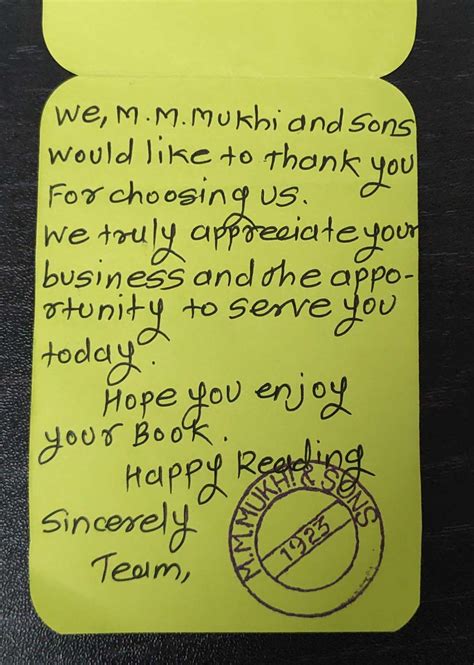 We, M.M.Mukhi and Sons
would like to thank you
For choosing us.
We truly appreeiate your
business and the appo-
rtunity to serve you
today.
Hope you enjoy
your Book.
Happy Reading
Sincerely
Team,
M.M.MUKHI & SONS
1923